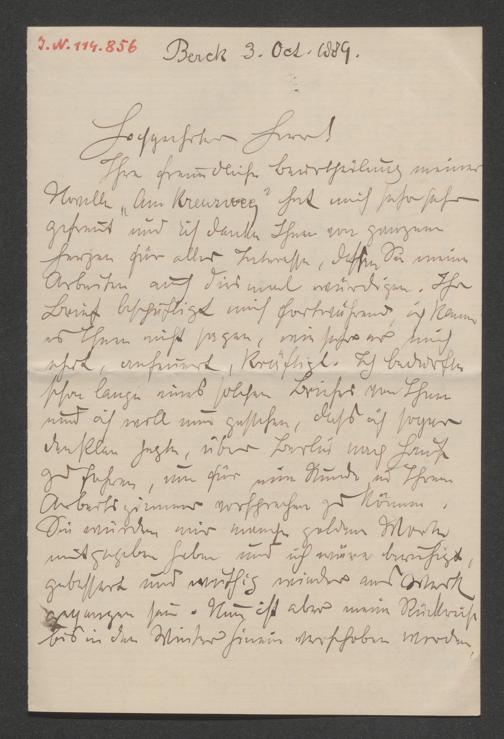 J.N. 114.856
Berck 3. Oct. 1889.
Hochgeehrter Herr!
Ihre freundliche Beurtheilung meiner
Novelle „Am Kreuzweg“ hat mich sehr sehr
gefreut und ich danke Ihnen von ganzem
Herzen für alles Interesse, dessen Sie meine
Arbeiten auch diesmal würdigen. Ihr
Brief beschäftigt mich fortwährend, ich kann
es Ihnen nicht sagen, wie sehr er mich
ehrt, anfeuert, kräftigt. Ich bedurfte
schon lange eines solchen Briefes von Ihnen
und ich will nun gestehen, dass ich sogar
den Plan hegte, über Berlin nach Hause
zu fahren, um für eine Stunde in Ihrem
Arbeitszimmer vorsprechen zu können.
Sie würden mir manch goldene Worte
mitgegeben haben und ich wäre beruhigt,
gebessert und muthig wieder ans Werk
gegangen sein. Nun ist aber meine Rückreise
bis in den Winter hinein verschoben worden,